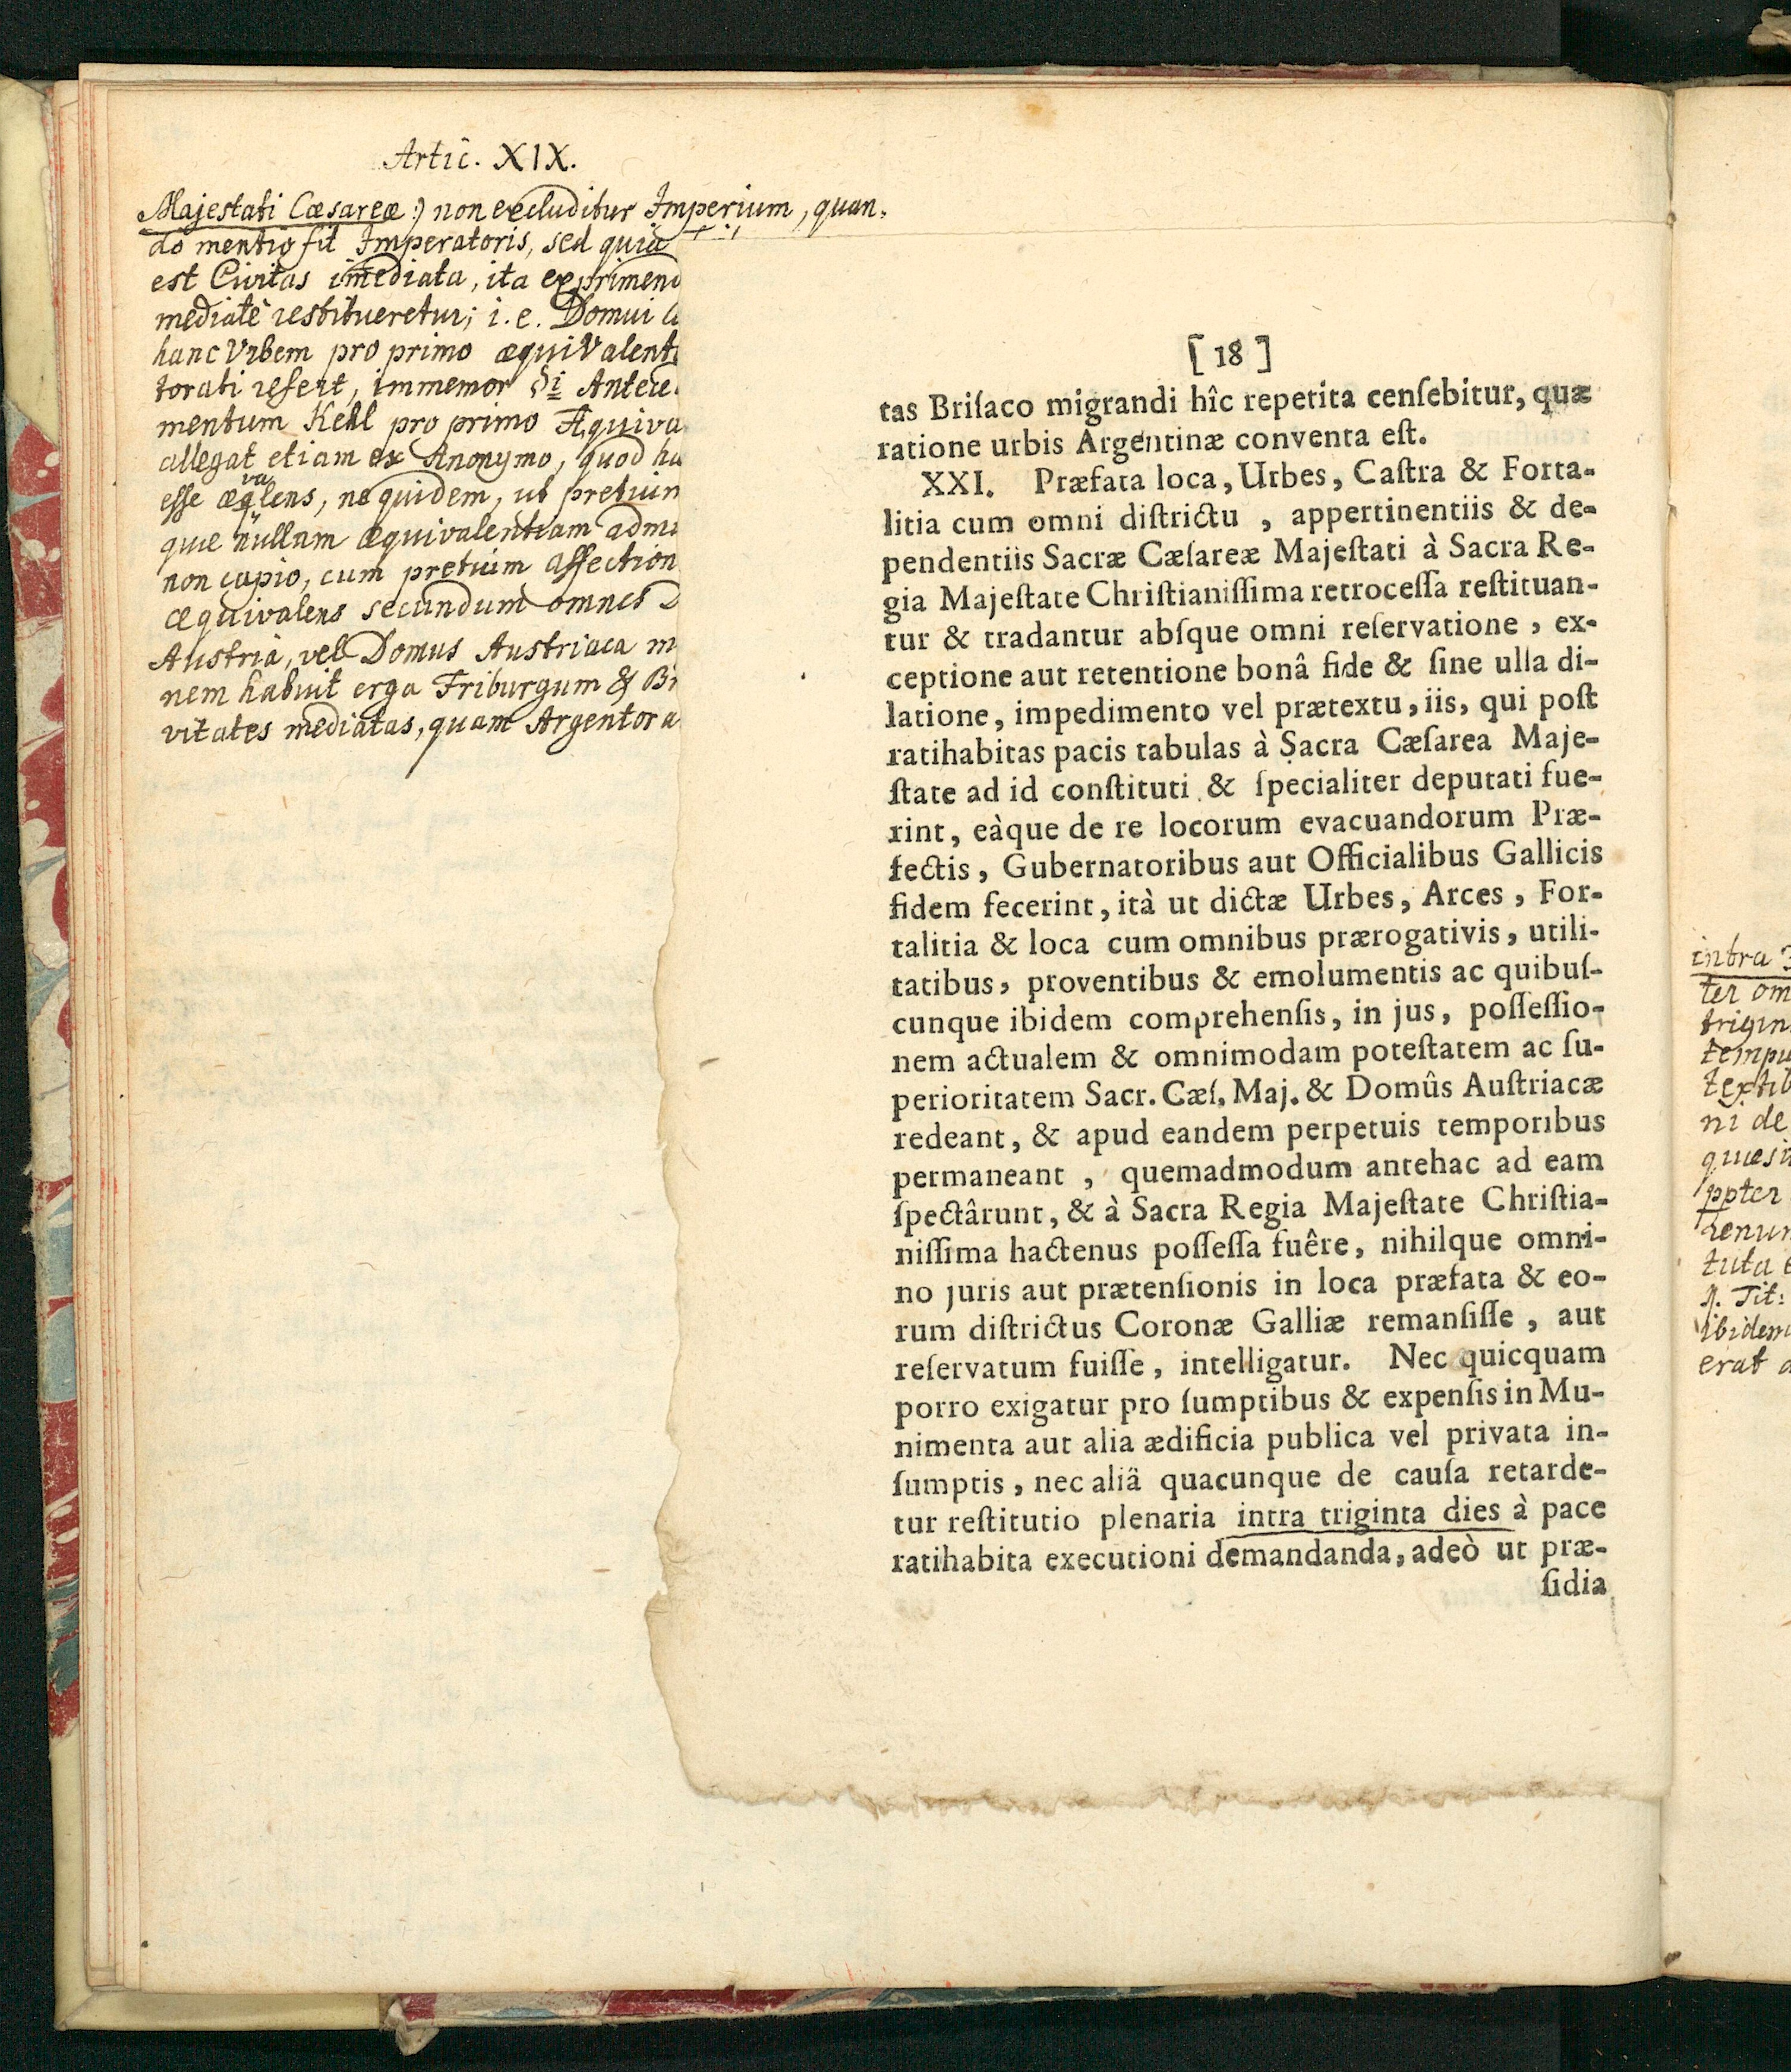 Artic. XIX.
Majestati Cæsareæ:) non excluditur Imperium, quan-
do mentio fit Imperatoris, sed quia
est Civitas im̄ediata, ita exprimend
mediatè restitueretur; i.e. Domui
hanc Urbem pro primo æquivalent
torati refert, immemor §i Antece
mentum Kehl pro primo Æquiva
allegat etiam ex Anonymo, quod
esse æqvalens, ne quidem, ut pretium
quæ nullam æquivalentiam admi
non capio, cum pretium affection
æquivalens secundum omnes
Austria, vel Domus Austriaca m
nem habuit erga Friburgum & Br
vitates mediatas, quam Argentora
[ 18 ]
tas Briſaco migrandi hîc repetita cenſebitur, quæ
ratione urbis Argentinæ conventa eſt.
XXI. Præfata loca, Urbes, Caſtra & Forta-
litia cum omni diſtrictu , appertinentiis & de-
pendentiis Sacræ Cæſareæ Majeſtati à Sacra Re-
gia Majeſtate Chriſtianiſſima retroceſſa reſtituan-
tur & tradantur abſque omni reſervatione , ex-
ceptione aut retentione bonâ fide & ſine ulla di-
latione, impedimento vel prætextu, iis, qui poſt
ratihabitas pacis tabulas à Sacra Cæſarea Maje-
ſtate ad id conſtituti & ſpecialiter deputati fue-
rint, eàque de re locorum evacuandorum Præ-
fectis, Gubernatoribus aut Officialibus Gallicis
fidem fecerint, ità ut dictæ Urbes, Arces , For-
talitia & loca cum omnibus prærogativis, utili-
tatibus, proventibus & emolumentis ac quibuſ-
cunque ibidem comprehenſis, in jus, poſſeſſio-
nem actualem & omnimodam poteſtatem ac ſu-
perioritatem Sacr. Cæſ. Maj. & Domûs Auſtriacæ
redeant, & apud eandem perpetuis temporibus
permaneant , quemadmodum antehac ad eam
ſpectârunt, & à Sacra Regia Majeſtate Chriſtia-
niſſima hactenus poſſeſſa fuêre, nihilque omni-
no juris aut prætenſionis in loca præfata & eo-
rum diſtrictus Coronæ Galliæ remanſiſſe , aut
reſervatum fuiſſe, intelligatur. Nec quicquam
porro exigatur pro ſumptibus & expenſis in Mu-
nimenta aut alia ædificia publica vel privata in-
ſumptis, nec aliâ quacunque de cauſa retarde-
tur reſtitutio plenaria intra triginta dies à pace
ratihabita executioni demandanda, adeò ut præ-
ſidia
intra
ter om
trigin
tempu
textib
ni de
quæsi
ppter
renun
tuta
Tit:
ibidem
erat